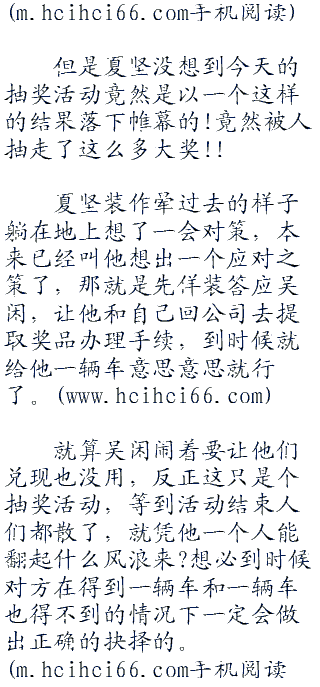 (m.hcihci66.com手机阅读)
但是夏坚没想到今天的
抽奖活动竟然是以一个这样
的结果落下帷幕的!竟然被人
抽走了这么多大奖!!
夏坚装作晕过去的样子
躺在地上想了一会对策，本
来已经叫他想出一个应对之
策了，那就是先佯装答应吴
闲，让他和自己回公司去提
取奖品办理手续，到时候就
给他一辆车意思意思就行
了。(www.hcihci66.com)
就算吴闲闹着要让他们
兑现也没用，反正这只是个
抽奖活动，等到活动结束人
们都散了，就凭他一个人能
翻起什么风浪来?想必到时候
对方在得到一辆车和一辆车
也得不到的情况下一定会做
出正确的抉择的。
(m.hcihci66.com手机阅读